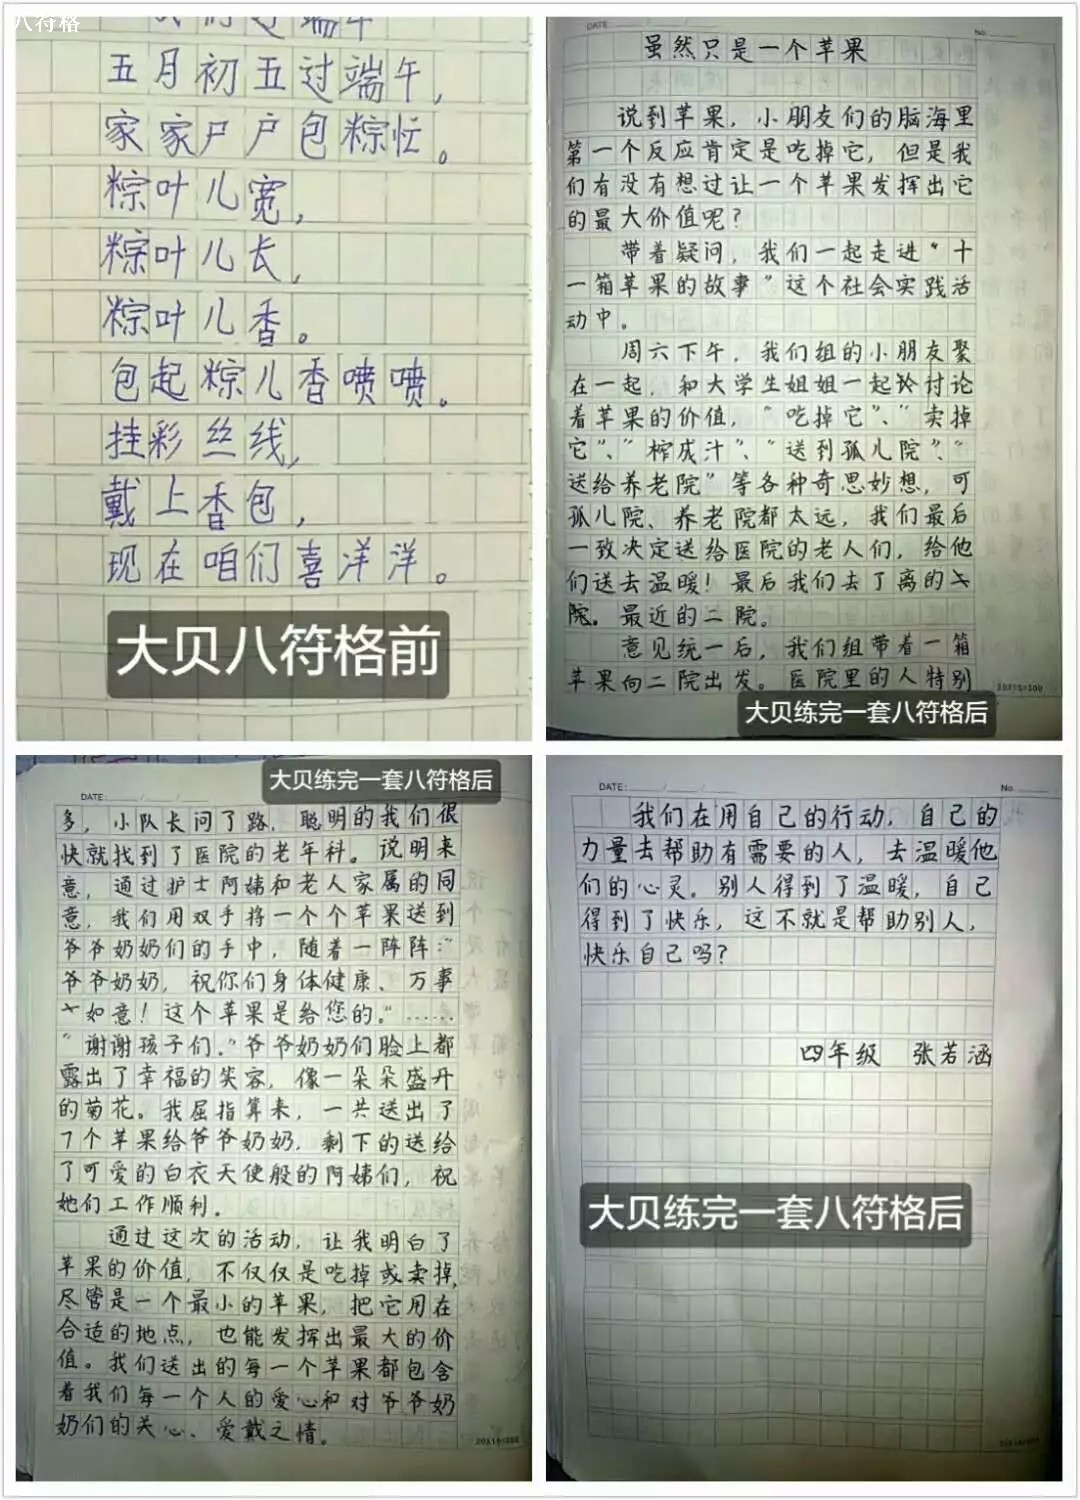 八符格
我们过端午
五月初五过端午，
家家户户包粽忙。
粽叶儿宽，
粽叶儿长，
粽叶儿香。
包起粽儿香喷喷。
挂彩丝线，
戴上香包，
现在咱们喜洋洋。
大贝八符格前
DATE:
No.
虽然只是一个苹果
说到苹果，小朋友们的脑海里
第一个反应肯定是吃掉它，但是我
们有没有想过让一个苹果发挥出它
的最大价值呢？
带着疑问，我们一起走进“十
一箱苹果的故事”这个社会实践活
动中。
周六下午，我们组的小朋友聚
在一起，和大学生姐姐一起讨论
着苹果的价值，“吃掉它”、“卖掉
它”、“榨成汁”、“送到孤儿院”、“
送给养老院”等各种奇思妙想，可
孤儿院、养老院都太远，我们最后
一致决定送给医院的老人们，给他
们送去温暖！最后我们去了离的
院。最近的二院。
意见统一后，我们组带着一箱
苹果向二院出发。医院里的人特别
20X15=300
大贝练完一套八符格后
大贝练完一套八符格后
DATE:
多，小队长问了路，聪明的我们很
快就找到了医院的老年科。说明来
意，通过护士阿姨和老人家属的同
意，我们用双手将一个个苹果送到
爷爷奶奶们的手中，随着一阵阵：“
爷爷奶奶，祝你们身体健康、万事
如意！这个苹果是给您的。”……
“谢谢孩子们。”爷爷奶奶们脸上都
露出了幸福的笑容，像一朵朵盛开
的菊花。我屈指算来，一共送出了
7个苹果给爷爷奶奶，剩下的送给
了可爱的白衣天使般的阿姨们，祝
她们工作顺利。
通过这次的活动，让我明白了
苹果的价值，不仅仅是吃掉或卖掉，
尽管是一个最小的苹果，把它用在
合适的地点，也能发挥出最大的价
值。我们送出的每一个苹果都包含
着我们每一个人的爱心和对爷爷奶
奶们的关心、爱戴之情。
20X15=300
DATE:
No.
我们在用自己的行动，自己的
力量去帮助有需要的人，去温暖他
们的心灵。别人得到了温暖，自己
得到了快乐，这不就是帮助别人，
快乐自己吗？
四年级 张若涵
大贝练完一套八符格后
20X15=300